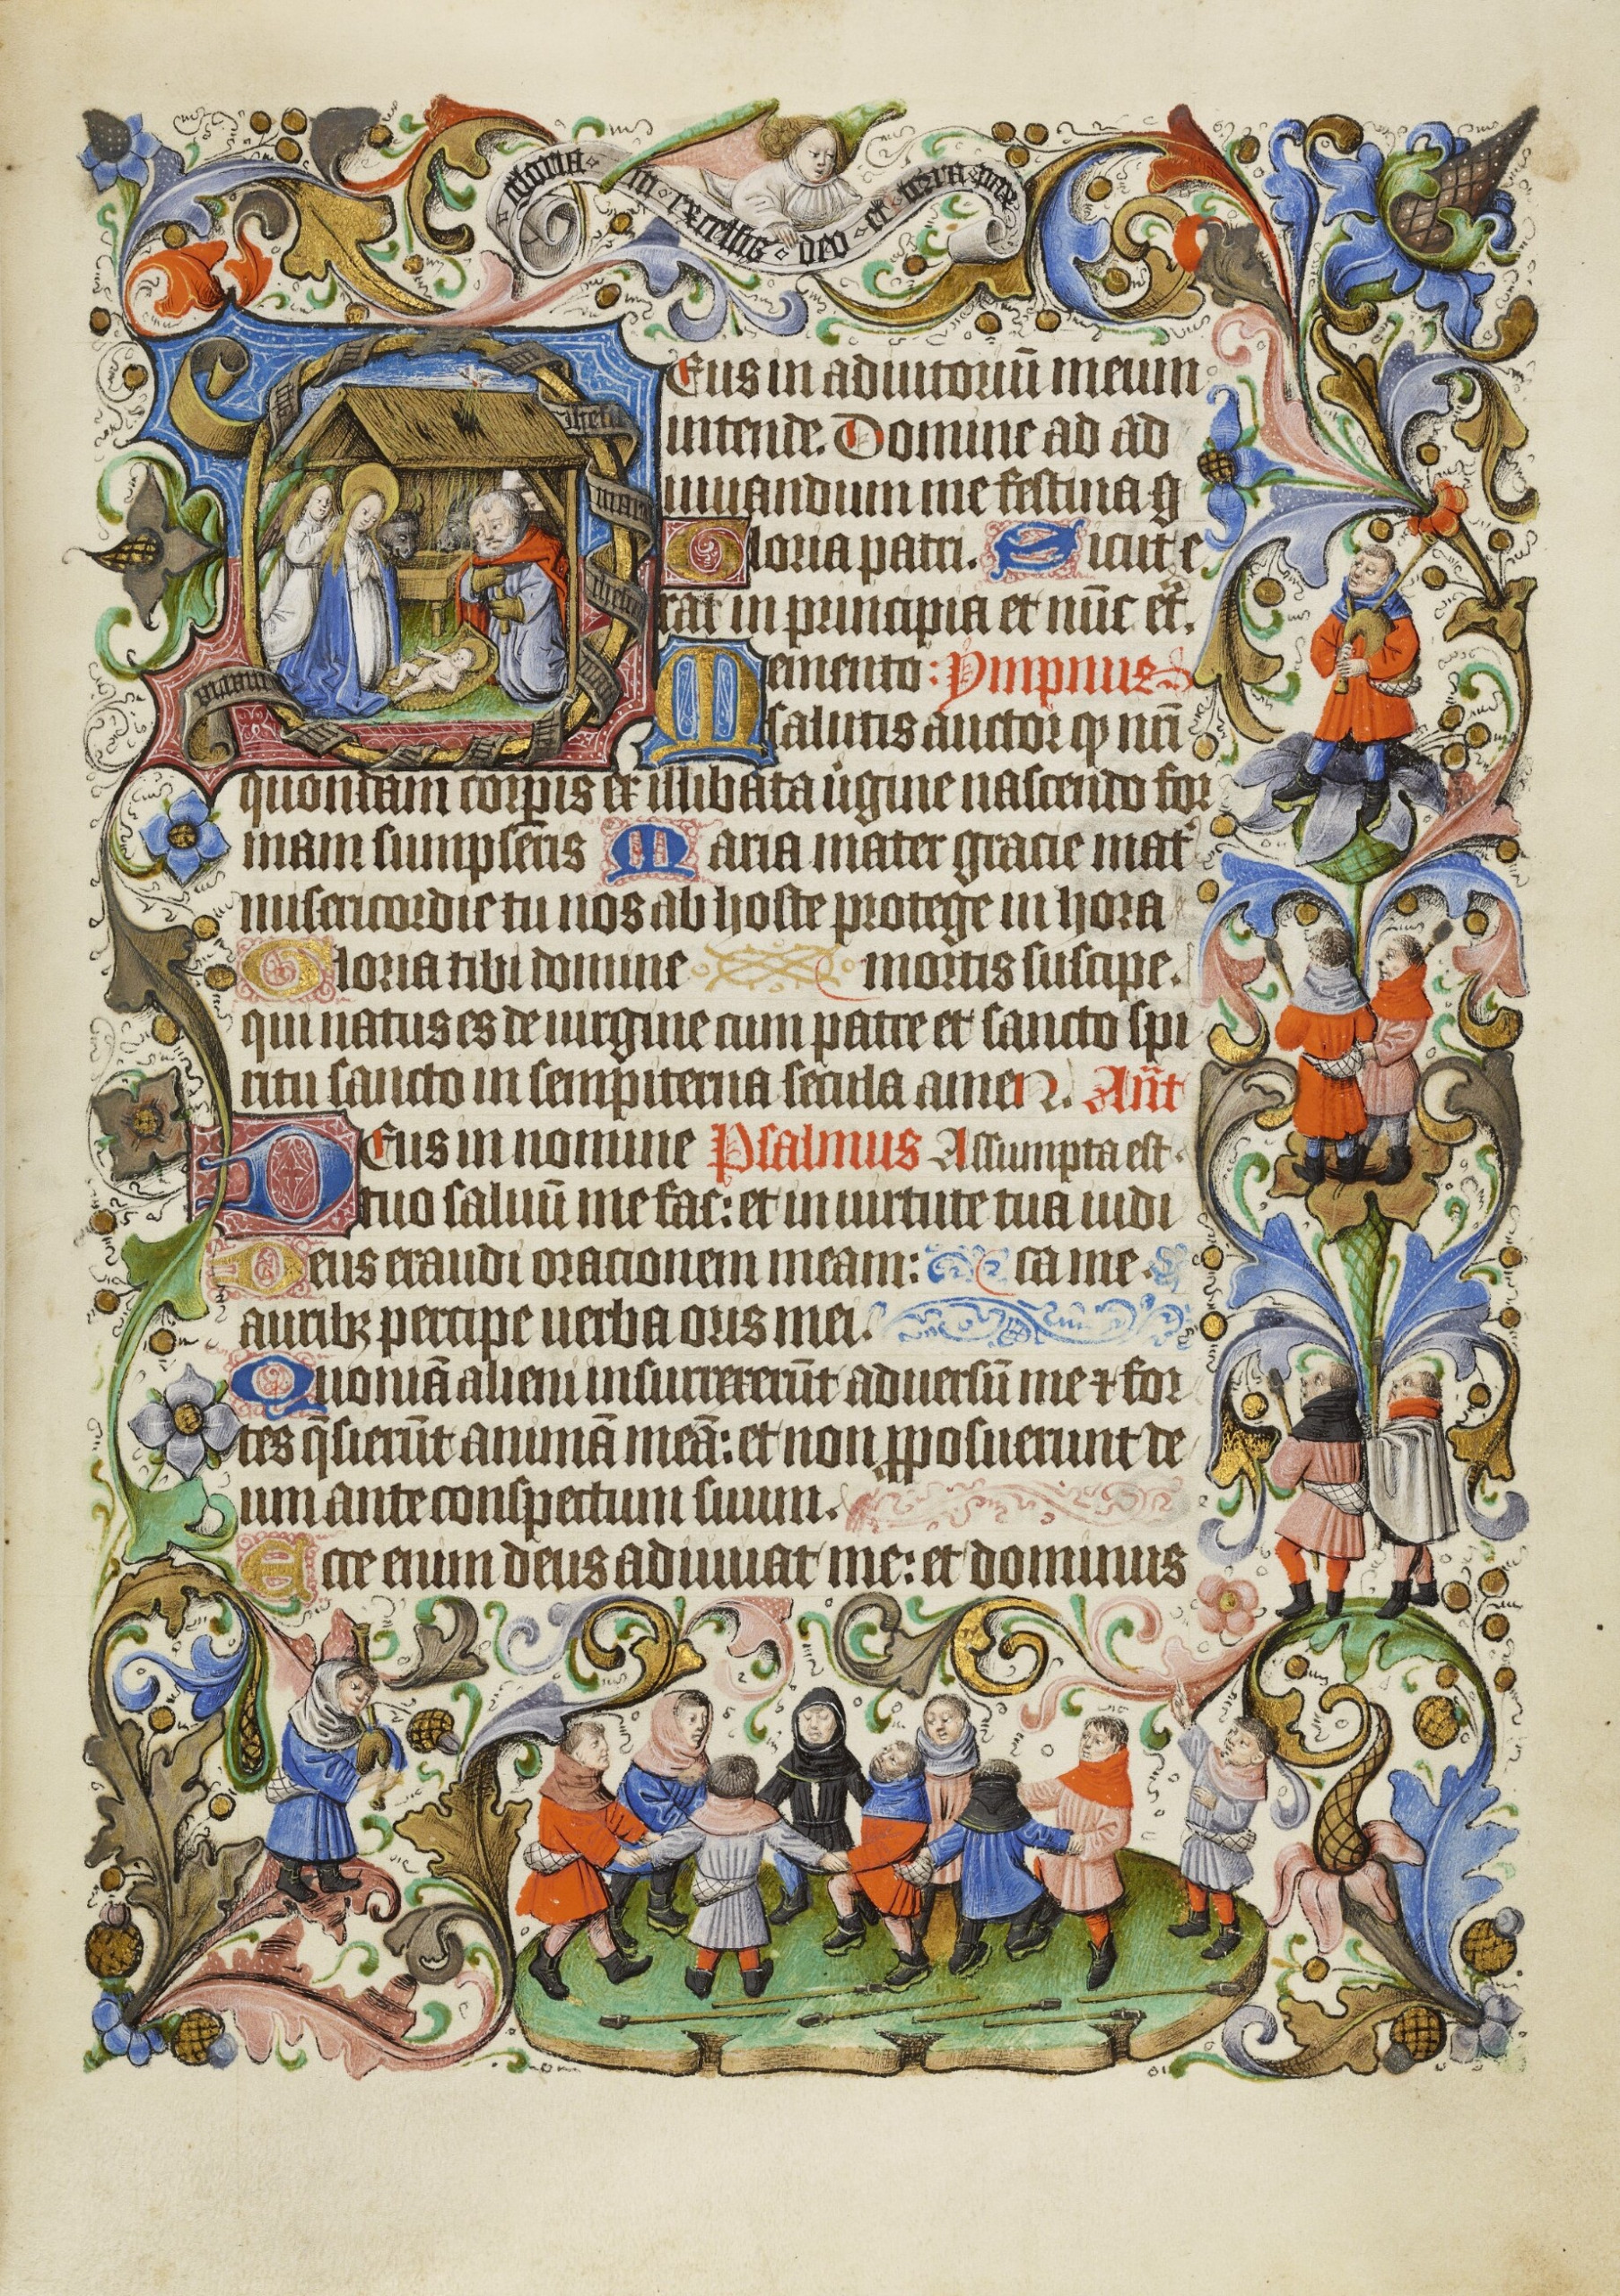 gloria in excelsis deo et terra pax
Eus in adiutoriū meum
intende. Domine ad ad
iuuandum me festina g
loria patri. Sicut e
rat in principia et nūc et.
emento: Ympnus
M salutis auctor qͥ nr̄i
quondam corpis ex illibata uͥgine nascendo for
mam sumpseris Maria mater gracie mat
misericordie tu nos ab hoste protege in hora
Gloria tibi domine mortis suscipe.
qui natus es de uirgine cum patre et sancto spi
ritu sancto in sempiterna secula amen. Ant̄
DEus in nomine Psalmus Assumpta est.
tuo saluū me fac: et in uirtute tua iudi
Deus exaudi orationem meam: ca me.
auribꝫ percipe uerba oris mei.
Quoniā alieni insurrexerūt aduersū me ⁊ for
tes q̄sierūt animā meā: et non ꝓposuerunt de
um ante conspectum suum.
Ecce enim deus adiuuat me: et dominus